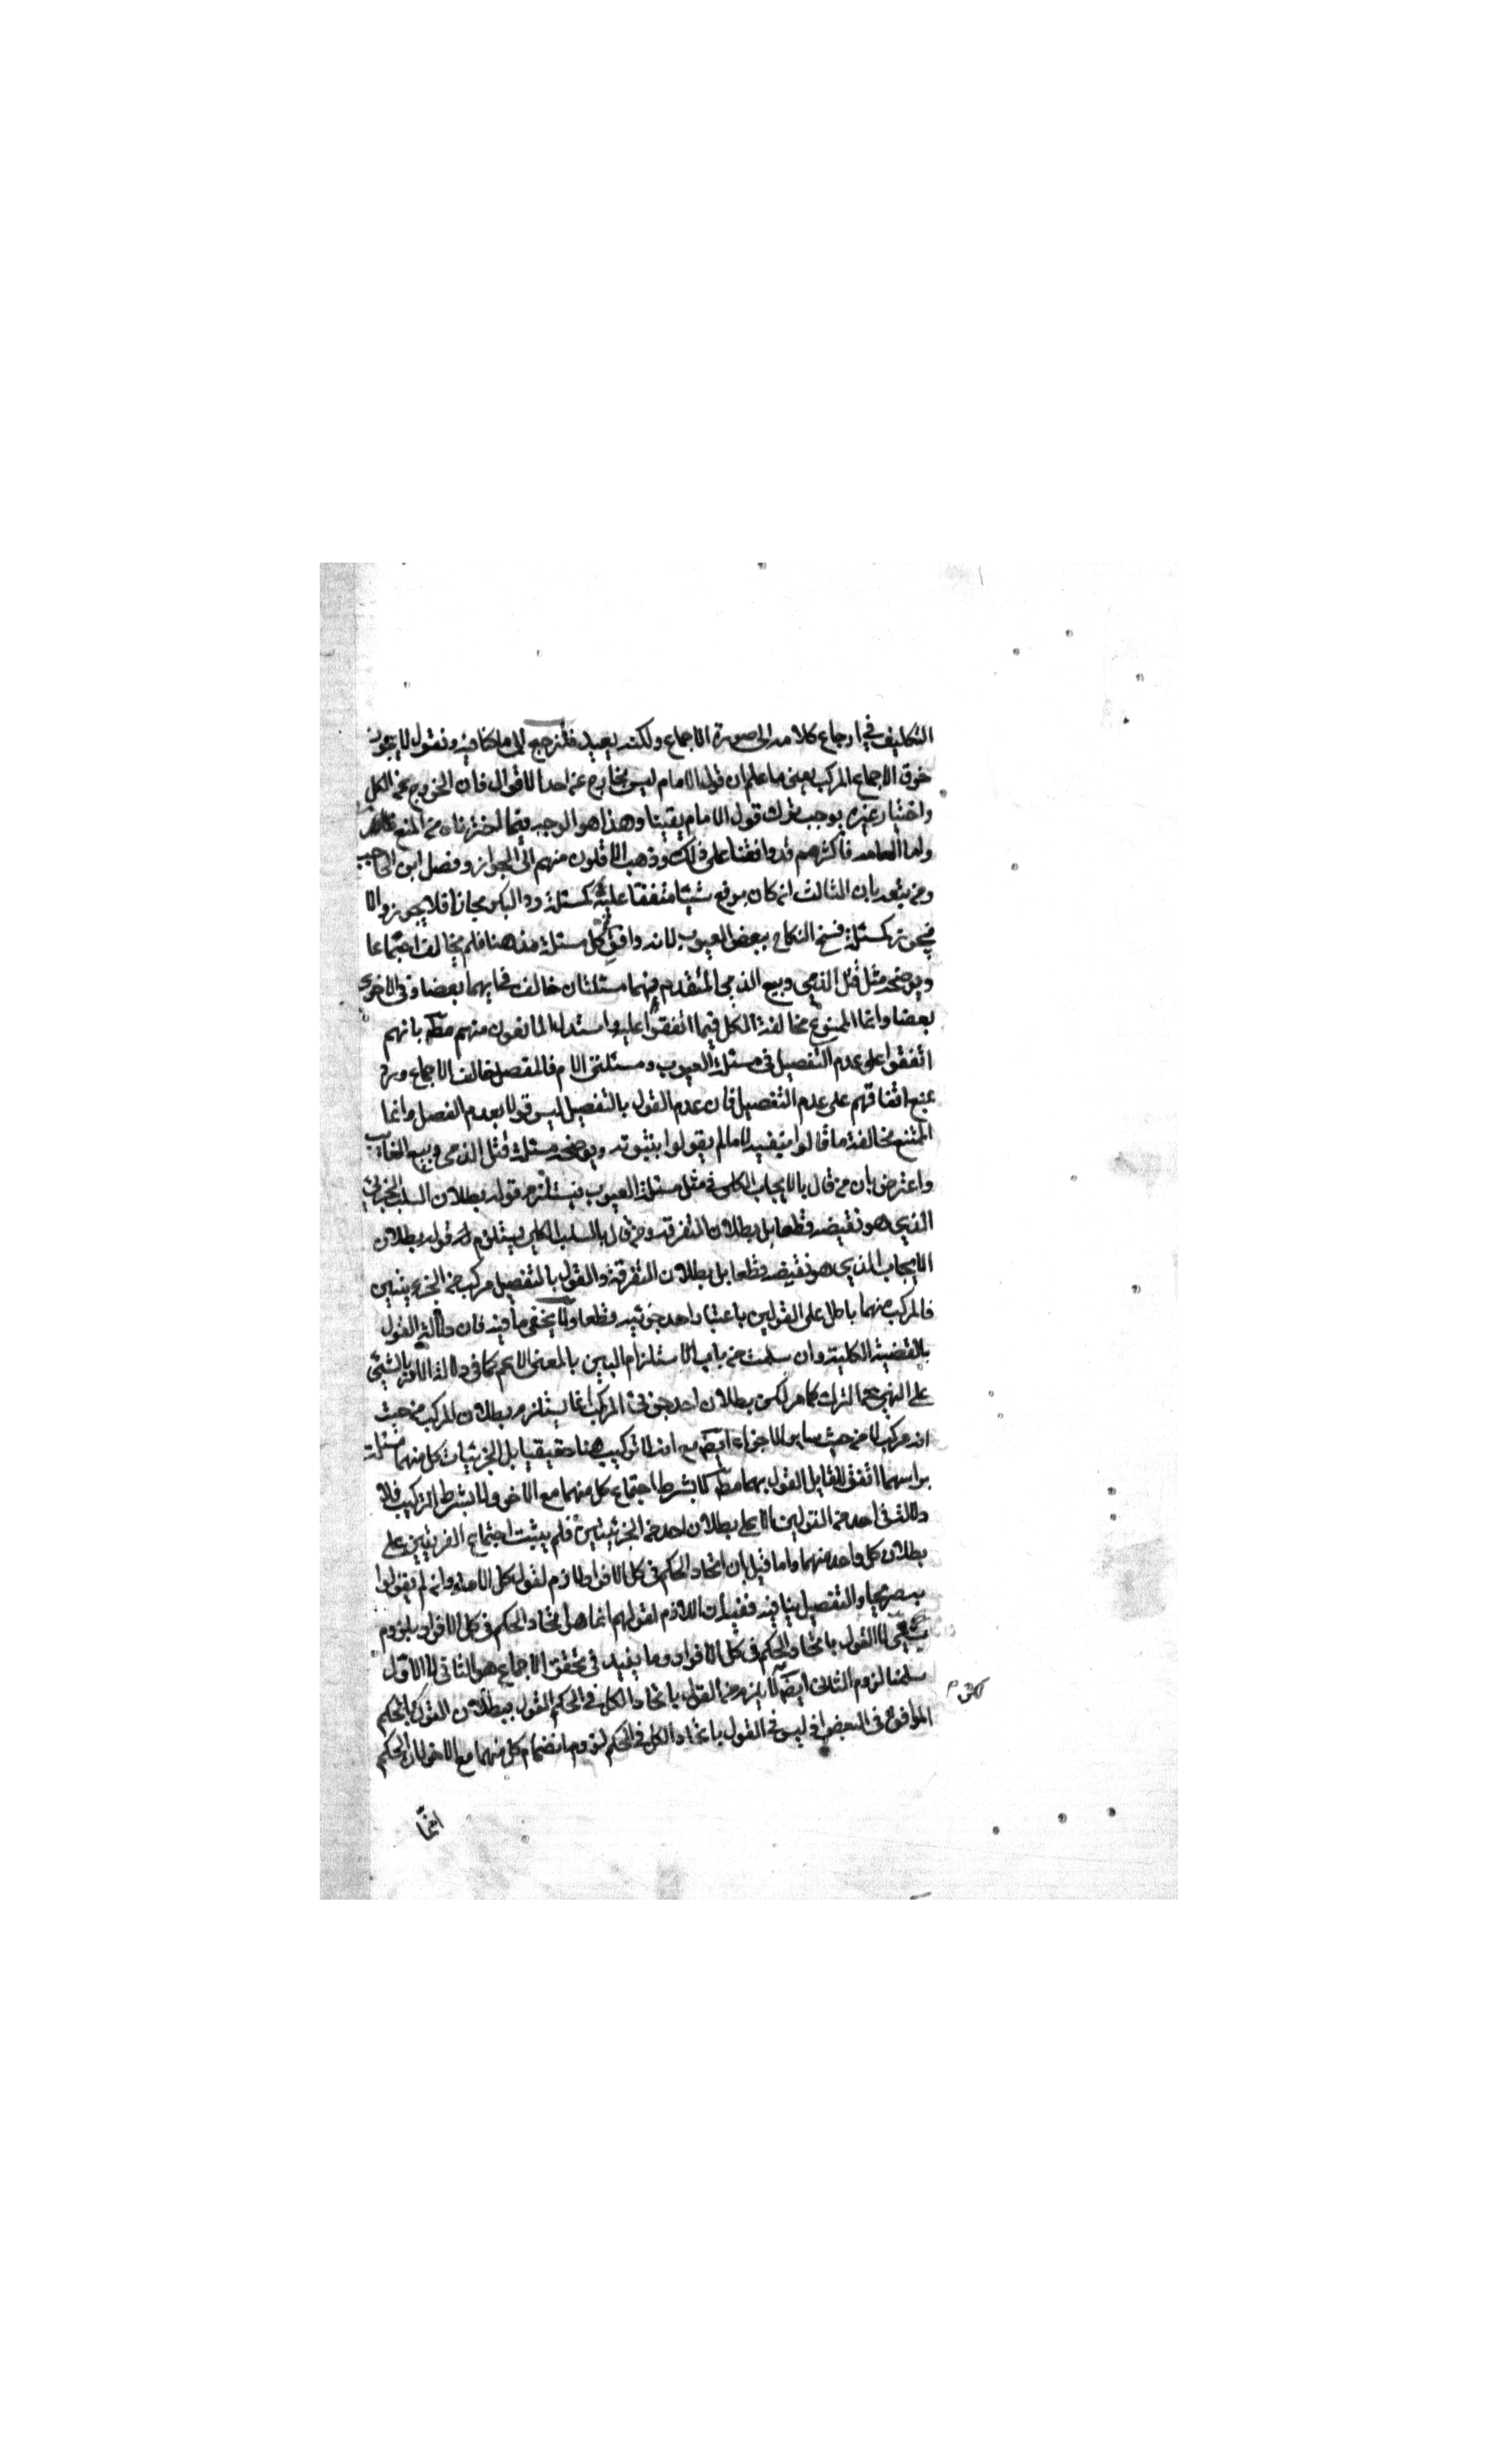 التكليف في ارجاع كلامه الى صورة الاجماع ولكنه بعيد فلنرجع الى ما كنا فيه ونقول لا يجوز
خرق الاجماع المركب يعنى ما علم ان قول الامام ليس بخارج عن احد الاقوال فان الخروج عن الكل
واختيار غيره يوجب ترك قول الامام يقينا وهذا هو الوجه فيما اخترناه من المنع
واما العامه فاكثرهم قد وافقنا على ذلك وذهب الاقلون منهم الى الجواز وفصل ابن الحاجب
ومن تبعه بان الثالث ان كان يرفع شيئا متفقا عليه كمسئلة رد البكر مجانا فلا يجوز والا
فيجوز كمسئلة فسخ النكاح ببعض العيوب لانه وافق في كل مسئلة مذهبا فلم يخالف اجماعا
ويوضحه مثل قتل الذمى وبيع الذمى المتقدم فانهما مسئلتان خالف في احديهما بعضا وفى الاخرى
بعضا وانما الممنوع مخالفة الكل فيما اتفقوا عليه واستدل المانعون منهم مطه بانهم
اتفقوا على عدم التفصيل فى مسئلة العيوب ومسئلتى الام فالمفصل خالف الاجماع ويرد
بمنع اتفاقهم على عدم التفصيل فان عدم القول بالتفصيل ليس قولا بعدم الفصل وانما
الممتنع مخالفة ما قالوا بنفيه لا ما لم يقولوا بثبوته ويوضحه مسئلة قتل الذمى وبيع الغايب
واعترض بان من قال بالايجاب الكلى فى مثل مسئلة العيوب فيستلزم قوله بطلان السلب الجزئى
الذى هو نقيضه قطعا بل بطلان التفرقة ومن قال بالسلب الكلى يستلزم قوله بطلان
الايجاب الذى هو نقيضه قطعا بل بطلان التفرقة والقول بالتفصيل مركب من الجزئيتين
فالمركب منهما باطل على القولين باعتبار احد جزئيه قطعا ولا يخفى ما فيه فان دلالة القول
بالقضية الكلية وان سلمت من باب الاستلزام البين بالمعنى الاعم كما فى دلالة الامر بالشيئ
على النهى عن الترك كما مر لكن بطلان احد جزئى المركب انما يستلزم بطلان المركب من حيث
انه مركب لا من حيث ساير الاجزاء ايضه مع انه لا تركيب هنا حقيقيا بل الجزئيات كل منهما مسئلة
براسهما اتفق للقايل القول بهما مطه لا بشرط اجتماع كل منهما مع الاخر ولا بشرط التركيب فلا
دلالة فى احد من القولين الا على بطلان احد من الجزئيتين فلم يثبت اجتماع الفريقين على
بطلان كل واحد منهما واما قيل بان اتحاد الحكم فى كل الافراد لازم لقول كل الامة وان لم يقولوا
به صريحا والتفصيل ينافيه ففيه ان اللازم لقولهم انما هو اتحاد الحكم فى كل الافراد بلزوم
تبعى لا القول باتحاد الحكم فى كل الافراد وما يفيد فى تحقق الاجماع هو الثانى لا الاول
سلمنا لزوم الثانى ايضه لا يلزم من القول باتحاد الكل فى الحكم القول ببطلان القول بالحكم
الموافق فى البعض اذ ليس فى القول باتحاد الكل فى الحكم لزوم انضمام كل منهما مع الاخر لان الحكم
انما